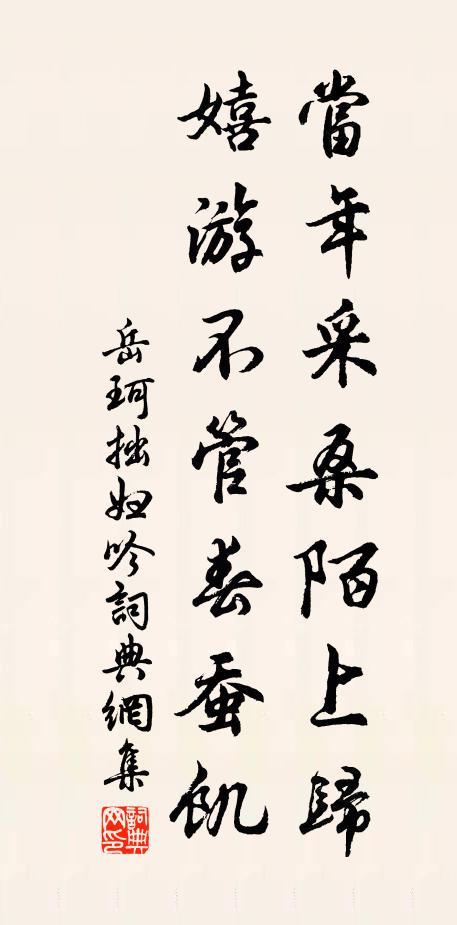 當年采桑陌上歸
嬉游不管春蚕飢
岳珂拙妇吟詞典網集
詞典網印